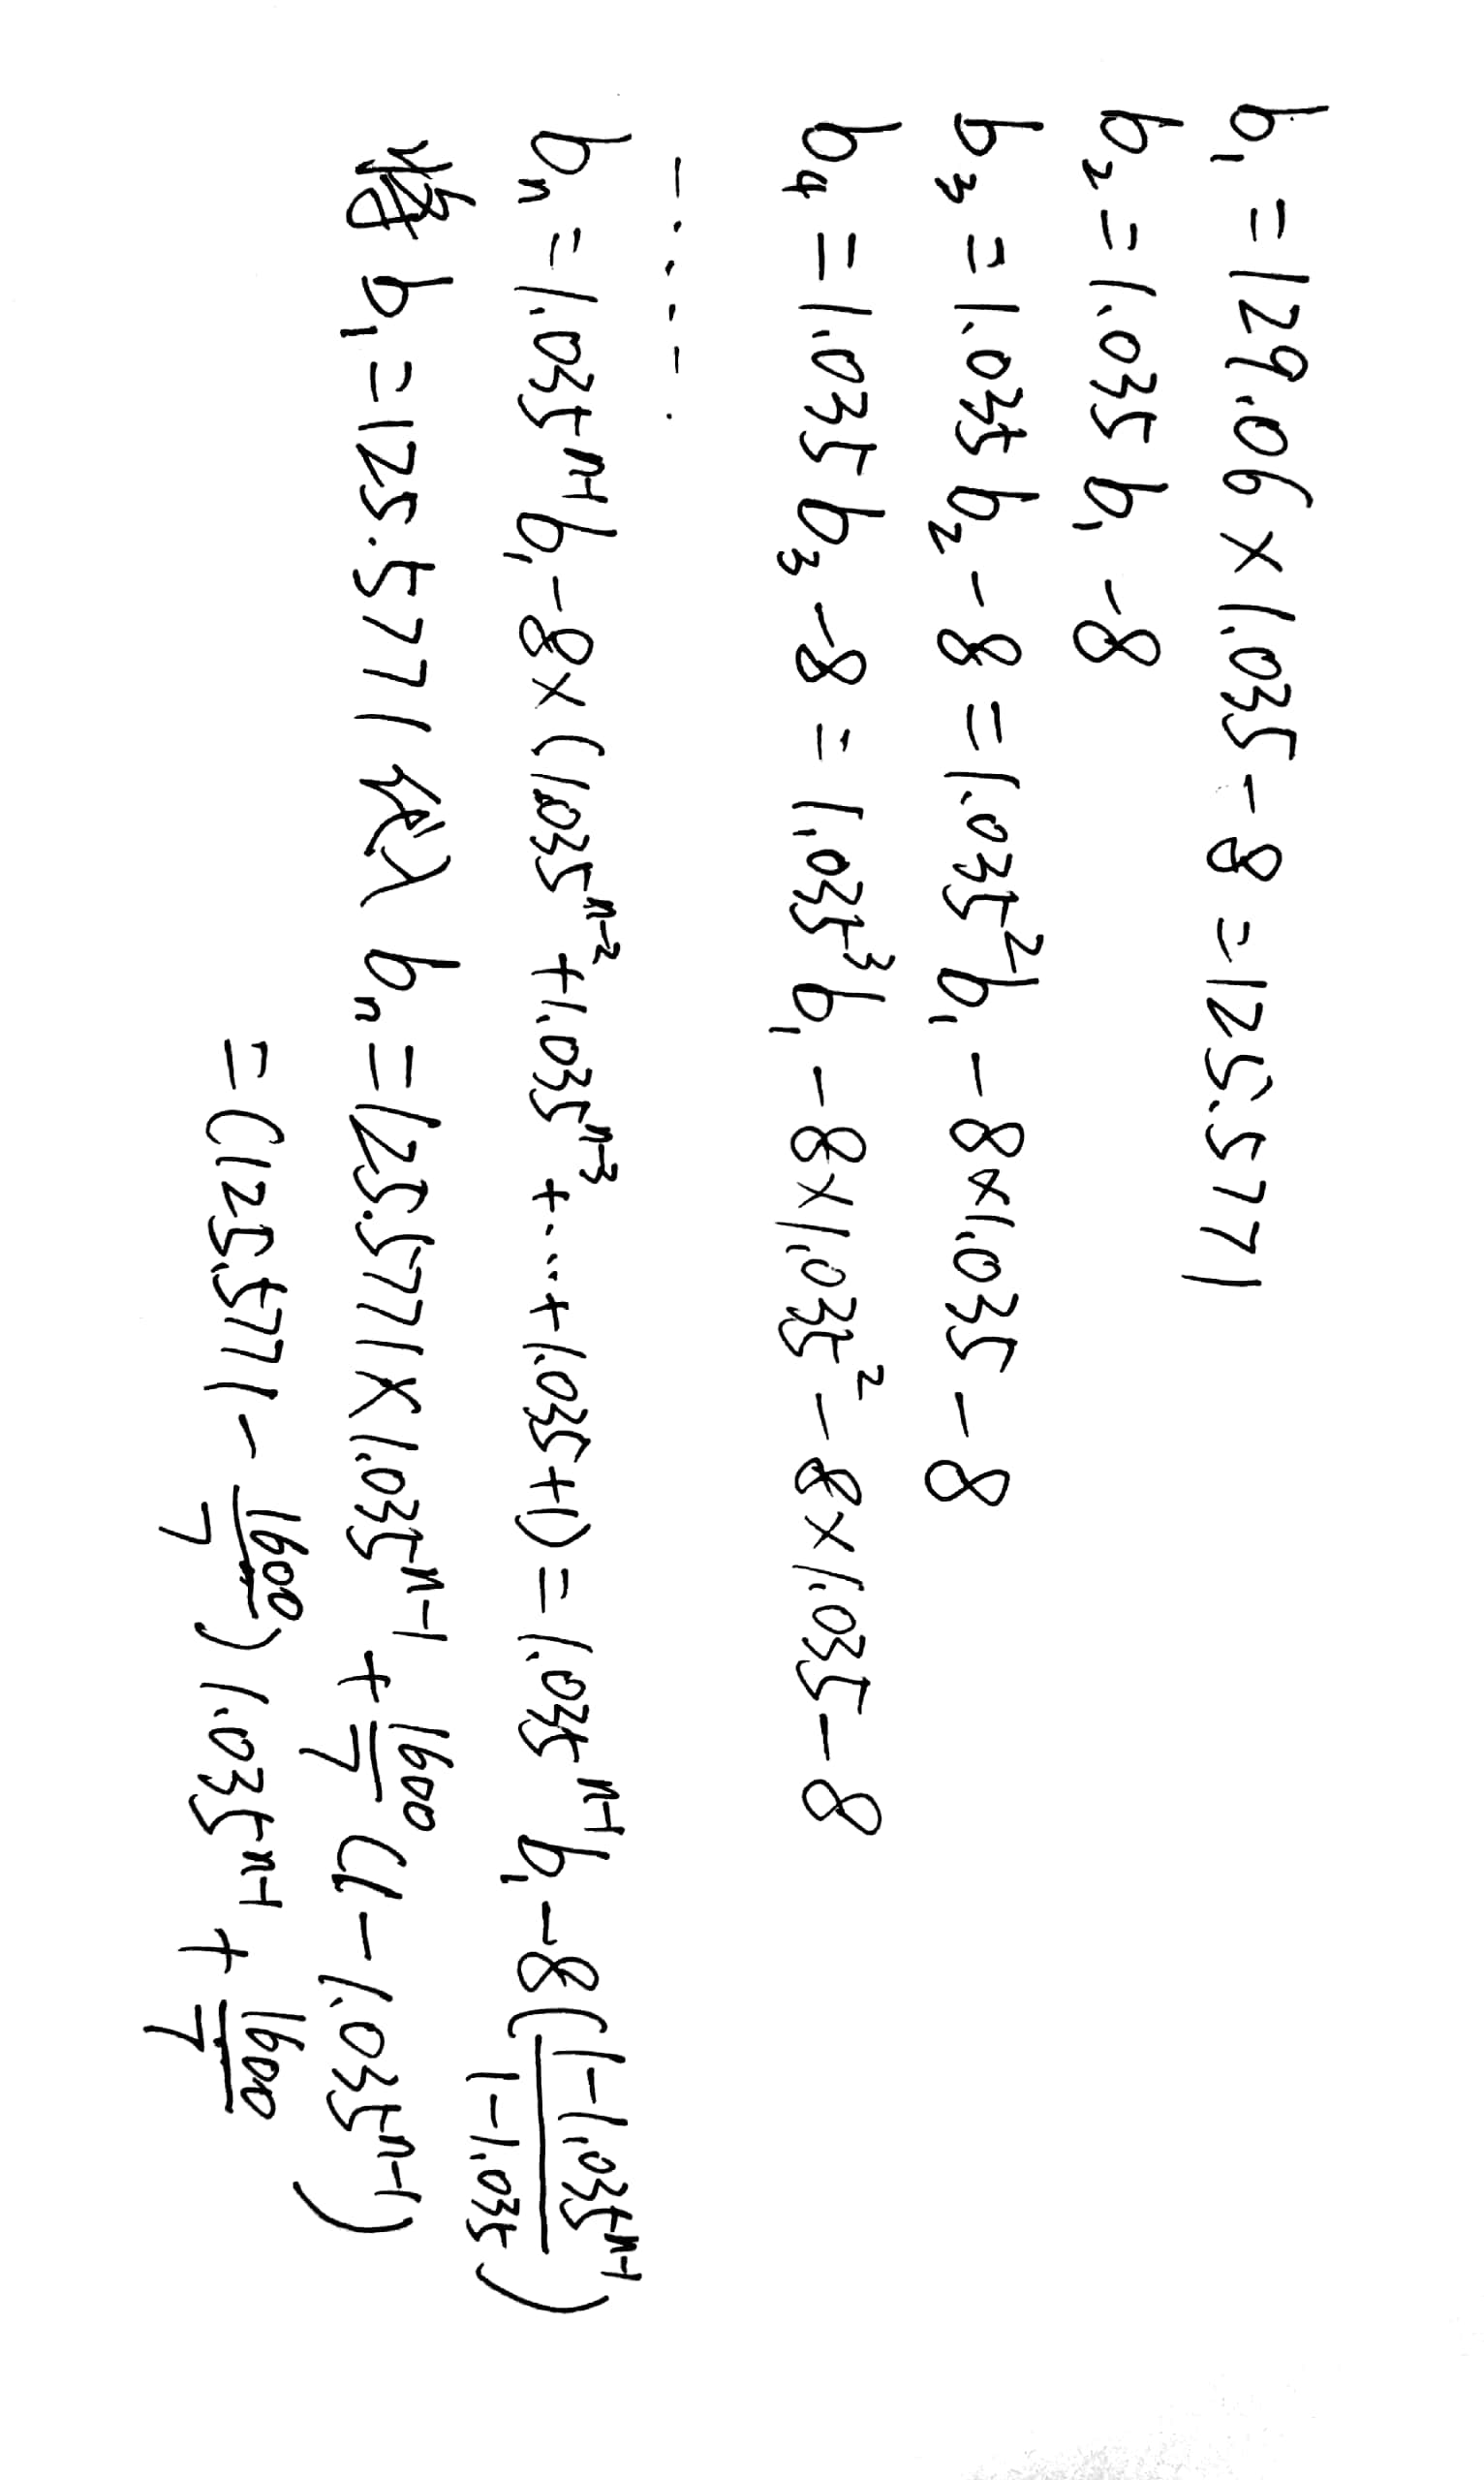 b₁ = 129.06 × 1.035 - 8 = 125.5771
b₂ = 1.035 b₁ - 8
b₃ = 1.035 b₂ - 8 = 1.035² b₁ - 8×1.035 - 8
b₄ = 1.035 b₃ - 8 = 1.035³ b₁ - 8×1.035² - 8×1.035 - 8
......
bₙ = 1.035ⁿ⁻¹ b₁ - 8×(1.035ⁿ⁻² + 1.035ⁿ⁻³ + ... + 1.035 + 1) = 1.035ⁿ⁻¹ b₁ - 8(\frac{1-1.035ⁿ⁻¹}{1-1.035})
将 b₁ = 125.5771 代入 bₙ = 125.5771 × 1.035ⁿ⁻¹ + \frac{1600}{7} (1 - 1.035ⁿ⁻¹)
= (125.5771 - \frac{1600}{7}) 1.035ⁿ⁻¹ + \frac{1600}{7}